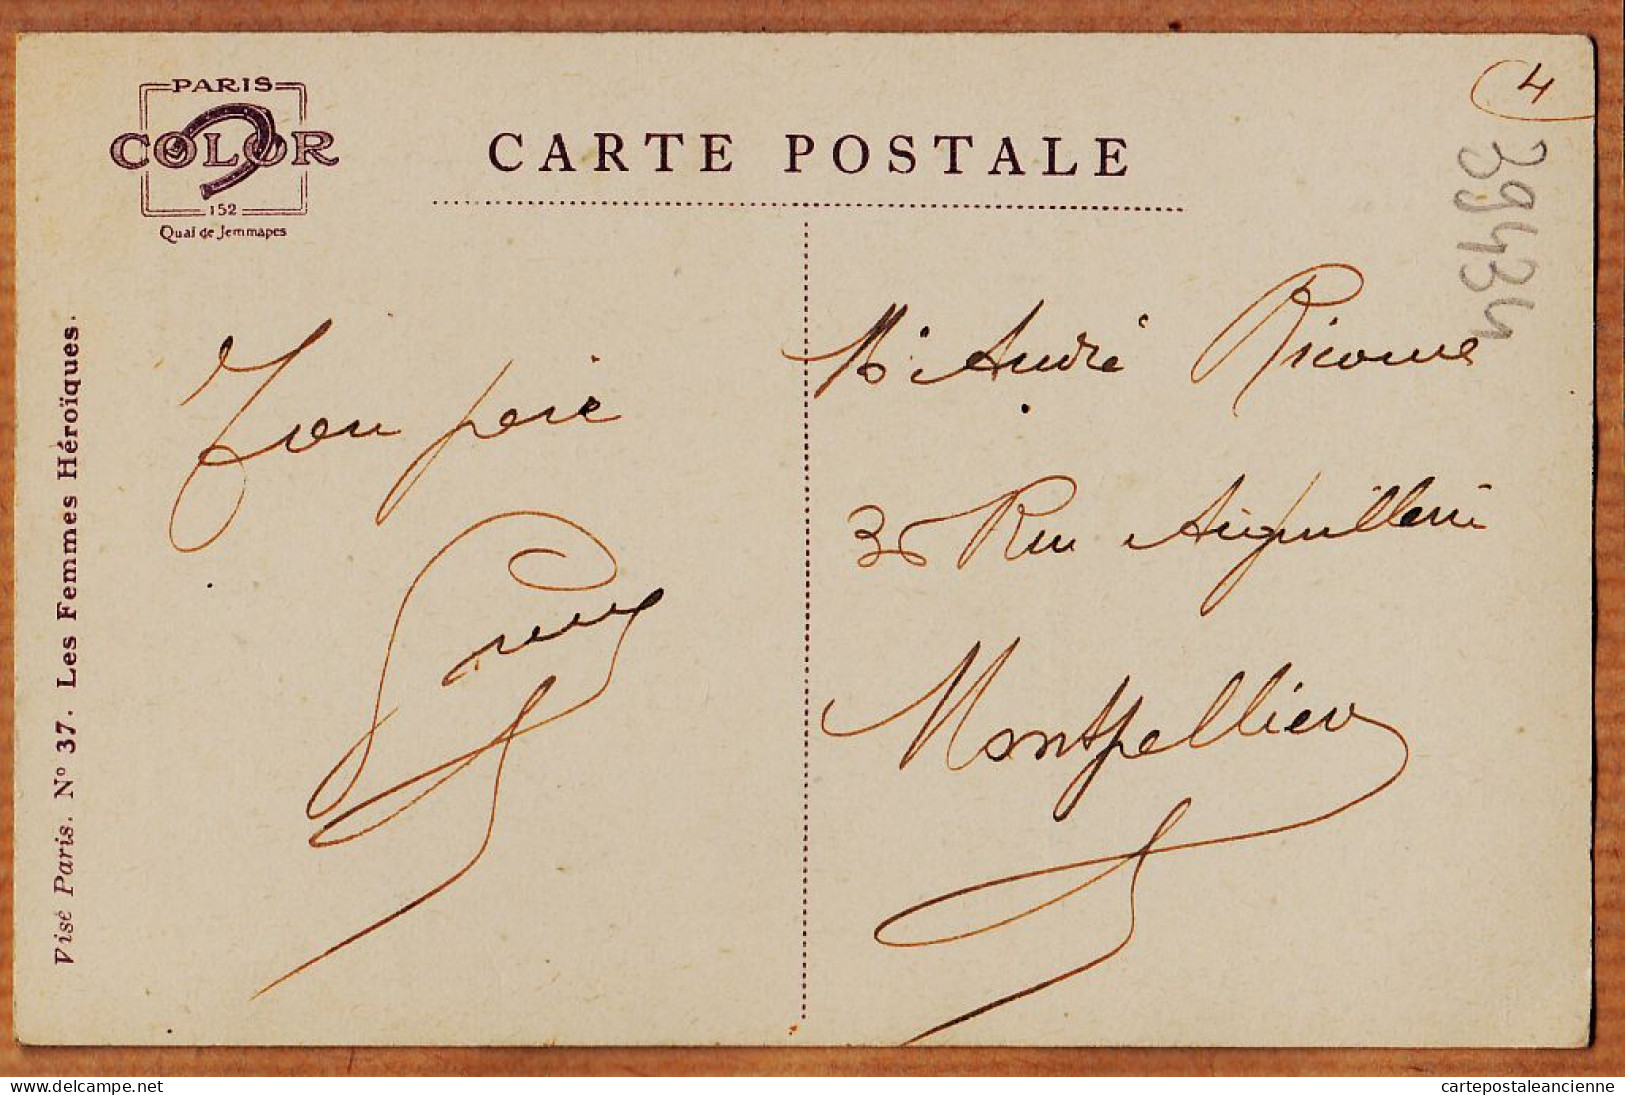 PARIS
COLOR
152
Quai de Jemmapes
CARTE POSTALE
4
39434
Visé Paris. N° 37. Les Femmes Héroïques.
Ton père
Mr André Ricome
36 Rue Aiguillerie
Montpellier
cartepostaleancienne